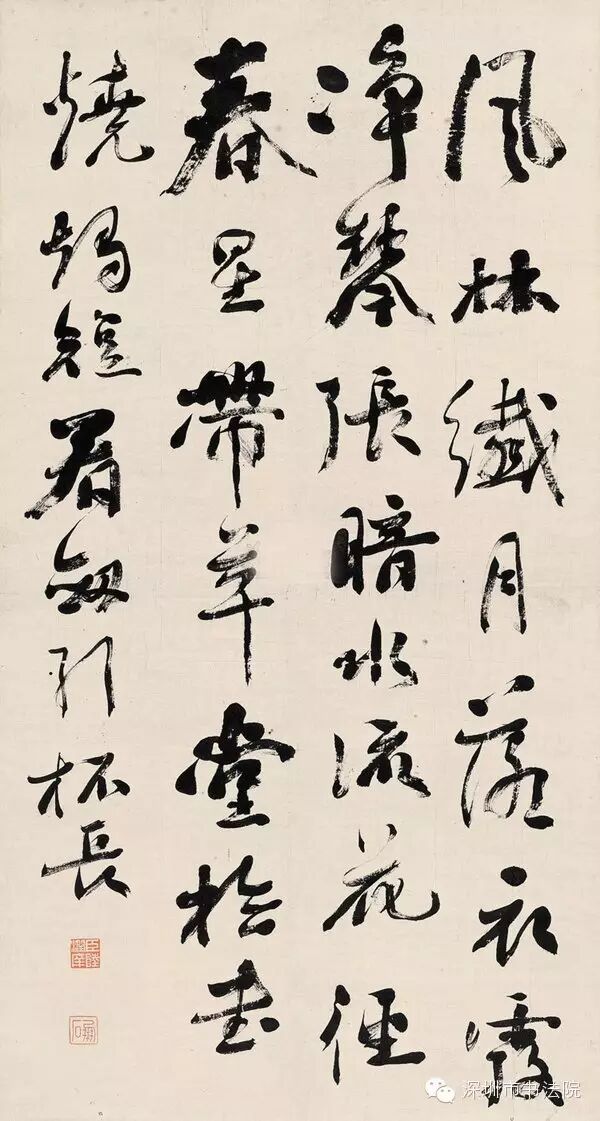 風林纖月落衣露
淨琴張暗水流花徑
春星帶草堂檢書
燒燭短看劍引杯長
臣陸潤庠
鳳石
深圳市书法院